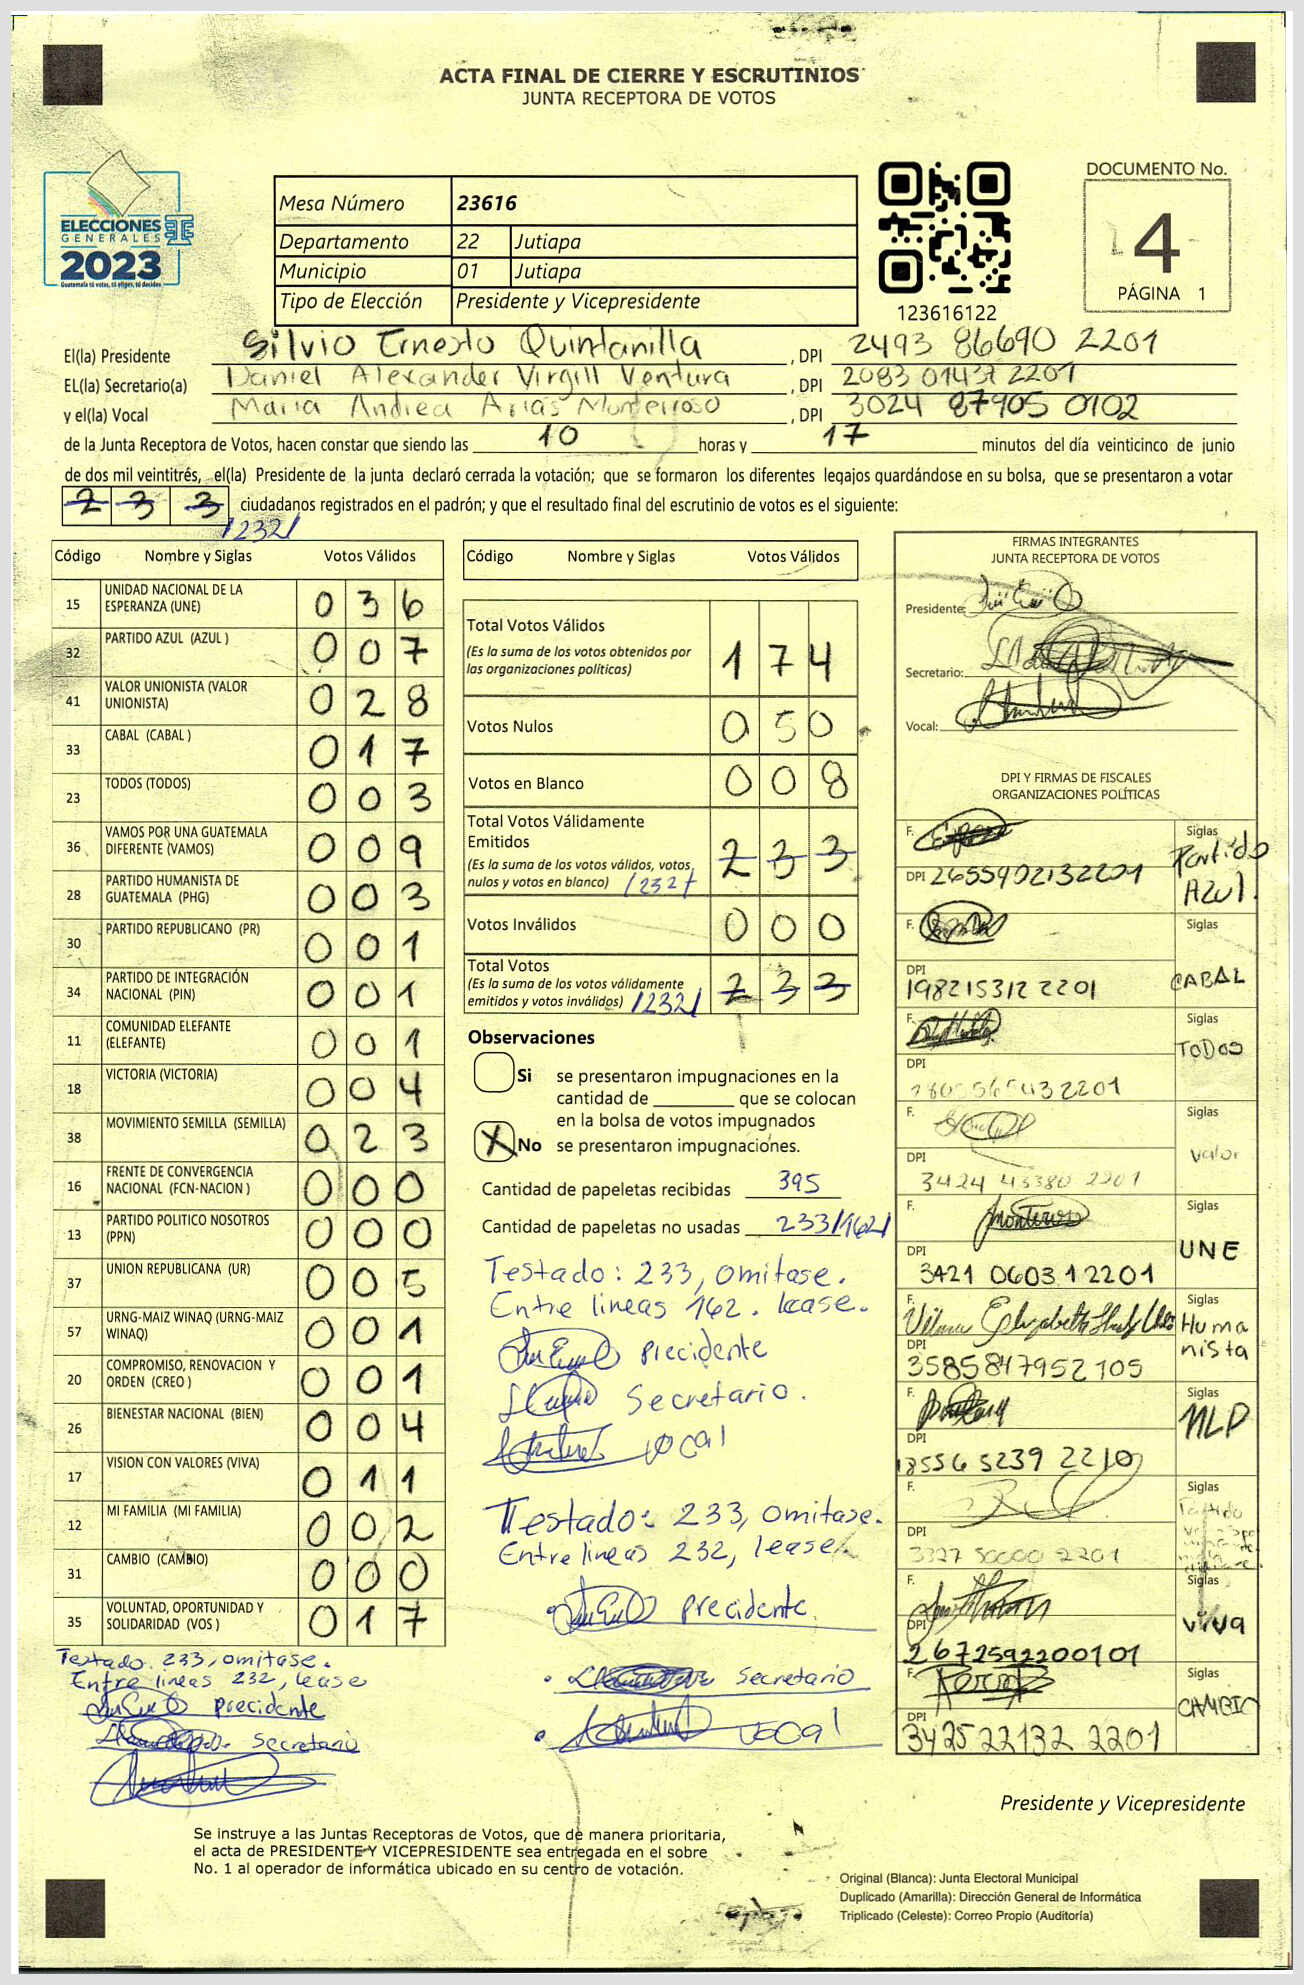 ACTA FINAL DE CIERRE Y ESCRUTINIOS
JUNTA RECEPTORA DE VOTOS
DOCUMENTO No.
4
PÁGINA 1
ELECCIONES
GENERALES
2023
Guatemala tú votas, tú eliges, tú decides
Mesa Número 23616
Departamento 22 Jutiapa
Municipio 01 Jutiapa
Tipo de Elección Presidente y Vicepresidente
123616122
El(la) Presidente Silvio Ernesto Quintanilla , DPI 2493 86690 2201
EL(la) Secretario(a) Daniel Alexander Virgill Ventura , DPI 2083 01437 2201
y el(la) Vocal Maria Andrea Arias Monterroso , DPI 3024 87905 0102
de la Junta Receptora de Votos, hacen constar que siendo las 10 horas y 17 minutos del día veinticinco de junio
de dos mil veintitrés, el(la) Presidente de la junta declaró cerrada la votación; que se formaron los diferentes legajos guardándose en su bolsa, que se presentaron a votar
2 3 3 ciudadanos registrados en el padrón; y que el resultado final del escrutinio de votos es el siguiente:
/232/
Código Nombre y Siglas Votos Válidos
15 UNIDAD NACIONAL DE LA ESPERANZA (UNE) 0 3 6
32 PARTIDO AZUL (AZUL ) 0 0 7
41 VALOR UNIONISTA (VALOR UNIONISTA) 0 2 8
33 CABAL (CABAL ) 0 1 7
23 TODOS (TODOS) 0 0 3
36 VAMOS POR UNA GUATEMALA DIFERENTE (VAMOS) 0 0 9
28 PARTIDO HUMANISTA DE GUATEMALA (PHG) 0 0 3
30 PARTIDO REPUBLICANO (PR) 0 0 1
34 PARTIDO DE INTEGRACIÓN NACIONAL (PIN) 0 0 1
11 COMUNIDAD ELEFANTE (ELEFANTE) 0 0 1
18 VICTORIA (VICTORIA) 0 0 4
38 MOVIMIENTO SEMILLA (SEMILLA) 0 2 3
16 FRENTE DE CONVERGENCIA NACIONAL (FCN-NACION ) 0 0 0
13 PARTIDO POLITICO NOSOTROS (PPN) 0 0 0
37 UNION REPUBLICANA (UR) 0 0 5
57 URNG-MAIZ WINAQ (URNG-MAIZ WINAQ) 0 0 1
20 COMPROMISO, RENOVACION Y ORDEN (CREO ) 0 0 1
26 BIENESTAR NACIONAL (BIEN) 0 0 4
17 VISION CON VALORES (VIVA) 0 1 1
12 MI FAMILIA (MI FAMILIA) 0 0 2
31 CAMBIO (CAMBIO) 0 0 0
35 VOLUNTAD, OPORTUNIDAD Y SOLIDARIDAD (VOS ) 0 1 7
Testado 233, omitase.
Entre lineas 232, lease
precidente
Secretario
Código Nombre y Siglas Votos Válidos
Total Votos Válidos 1 7 4
(Es la suma de los votos obtenidos por
las organizaciones políticas)
Votos Nulos 0 5 0
Votos en Blanco 0 0 8
Total Votos Válidamente
Emitidos 2 3 3
(Es la suma de los votos válidos, votos
nulos y votos en blanco) /232/
Votos Inválidos 0 0 0
Total Votos
(Es la suma de los votos válidamente
emitidos y votos inválidos) /232/ 2 3 3
Observaciones
Si se presentaron impugnaciones en la
cantidad de ________ que se colocan
en la bolsa de votos impugnados
X No se presentaron impugnaciones.
Cantidad de papeletas recibidas 395
Cantidad de papeletas no usadas 233/162/
Testado: 233, omitase.
Entre lineas 162. lease.
precidente
Secretario.
vocal
Testado: 233, omitase.
Entre lineas 232, lease.
precidente.
Secretario
vocal
FIRMAS INTEGRANTES
JUNTA RECEPTORA DE VOTOS
Presidente:
Secretario:
Vocal:
DPI Y FIRMAS DE FISCALES
ORGANIZACIONES POLÍTICAS
F. Siglas Partido Azul.
DPI 2655902132201
F. Siglas CABAL
DPI 198215312 2201
F. Siglas TODOS
DPI 2201
F. Siglas Valor
DPI 3424 43380 2201
F. Monterroso Siglas UNE
DPI 3421 0603 1 2201
F. Vilma Elizabeth Siglas Humanista
DPI 3585847952105
F. Siglas MLP
DPI 18556 5239 2210
F. Siglas Partido
DPI 3327 50000 2201
F. Siglas VIVA
DPI 2672592200101
F. Siglas CAMBIO
DPI 342522132 2201
Presidente y Vicepresidente
Se instruye a las Juntas Receptoras de Votos, que de manera prioritaria,
el acta de PRESIDENTE Y VICEPRESIDENTE sea entregada en el sobre
No. 1 al operador de informática ubicado en su centro de votación.
Original (Blanca): Junta Electoral Municipal
Duplicado (Amarilla): Dirección General de Informática
Triplicado (Celeste): Correo Propio (Auditoría)